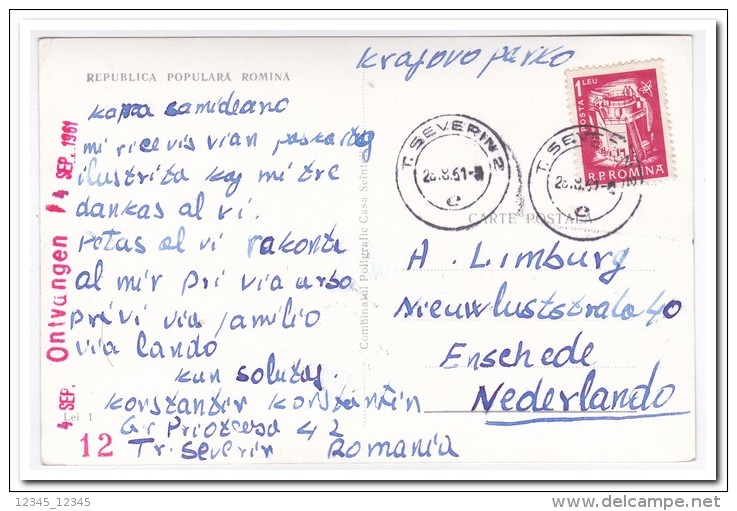 REPUBLICA POPULARĂ ROMINA
Krajovo parko
kara samideano
mi ricevis vian poskartoj
ilustrita kaj mi tre
dankas al vi.
Petas al vi rakonti
al mir pri via urbo
pri vi via familio
via lando
kun salutoj.
Konstantin Konstantin
Gr. 42
Tr. Severin Romania
Lei 1
12
4 SEP. Ontvangen 4 SEP. 1961
Combinatul Poligrafic Casa Scinteii
1 LEU
POSTA
R.P.ROMINA
T. SEVERIN 2
28.8.61
e
T. SEVE
28.8.61
e
CARTE POSTALA
A. Limburg
Nieuwluststrato 40
Enschede
Nederlando
12345_12345
delcampe.net